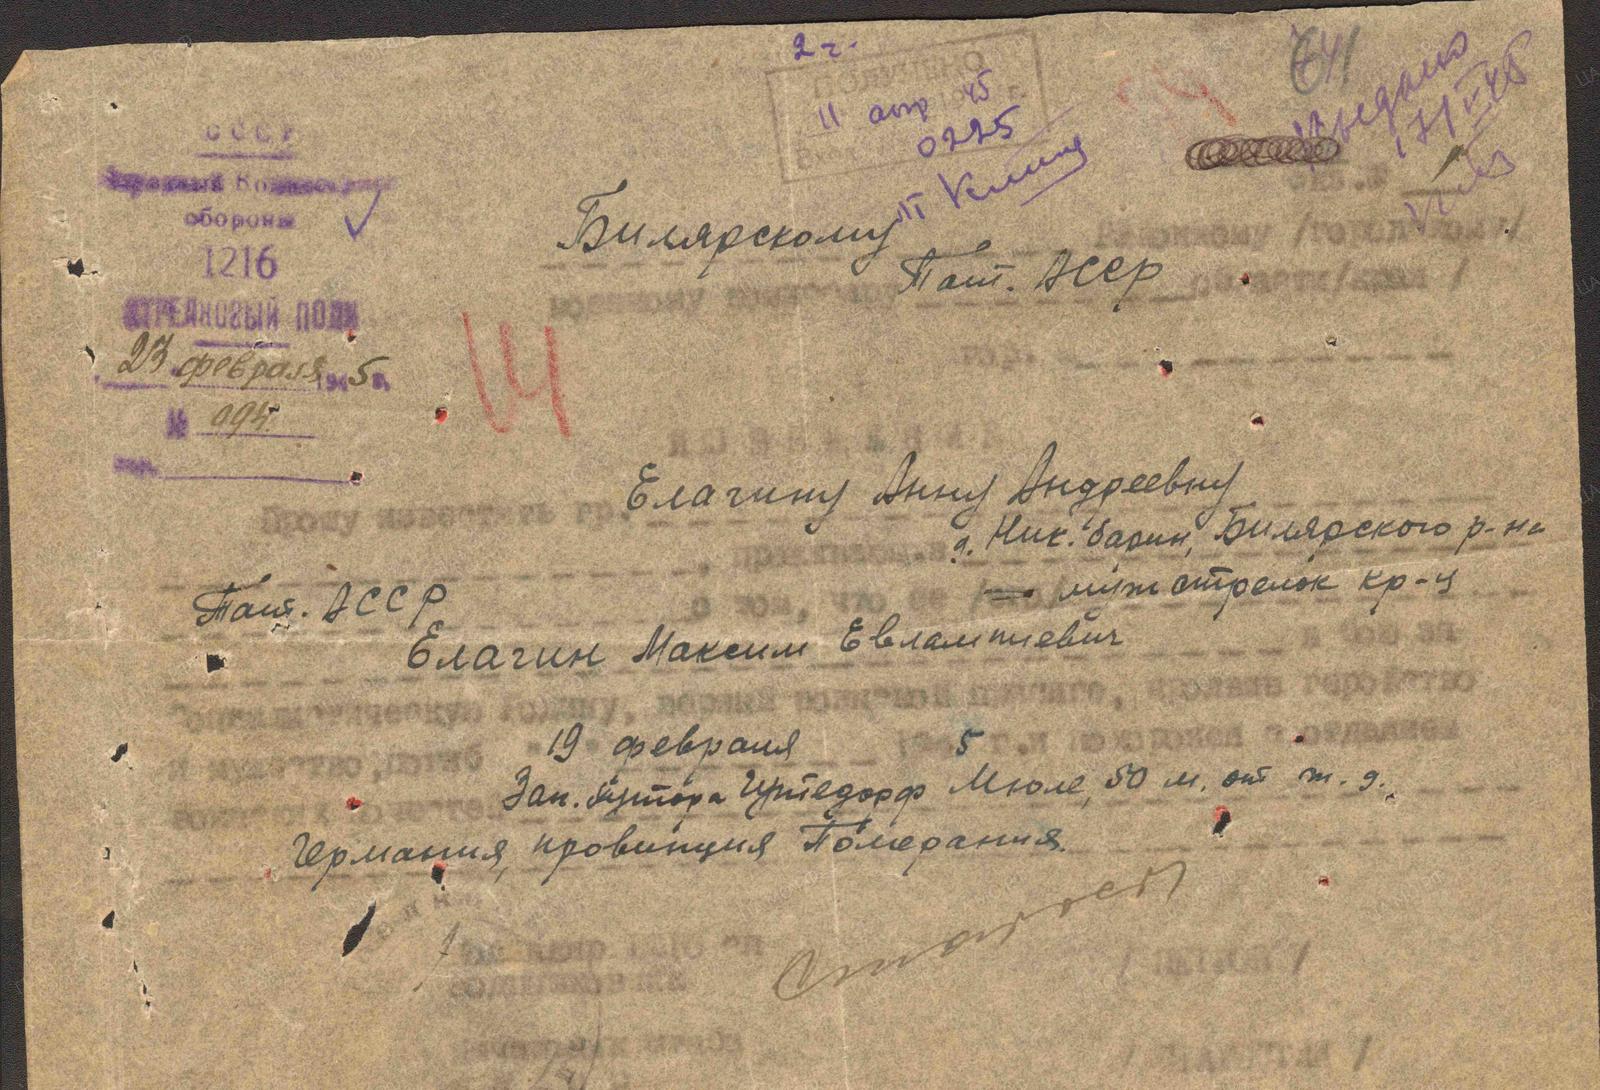 2 г.
641
ПОЛУЧЕНО
11 апр 45
0225
Выдано
СССР
Народный Комиссариат
обороны
1216
СТРЕЛКОВЫЙ ПОЛК
23 февраля 1945 г.
№ 994
гор.
Билярскому Районному /городскому/
военному комиссару Тат. АССР области/края /
гор.
14
ИЗВЕЩЕНИЕ
Прошу известить гр. Елагину Анну Андреевну
, прожива д. Ник. Баран, Билярского р-на
Тат. АССР о том, что ее /его/ муж стрелок кр-ц
Елагин Максим Евлампиевич в бою за
Социалистическую Родину, верный воинской присяге, проявив геройство
и мужество, погиб "19" февраля 1945 г. и похоронен с отданием
воинских почестей. Зап. хутора Мюле, 50 м. от ж. д.
Германия, провинция Померания.
1216 сп
ПОДПОЛКОВНИК
НАЧАЛЬНИК ШТАБА